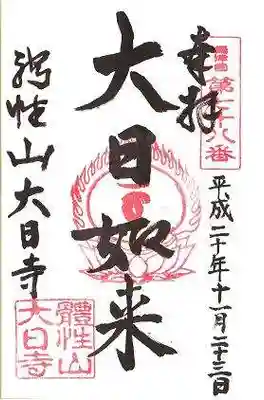 奉拝
平成二十年十一月二十三日
大日如来
躰性山大日寺
體性山
大日寺